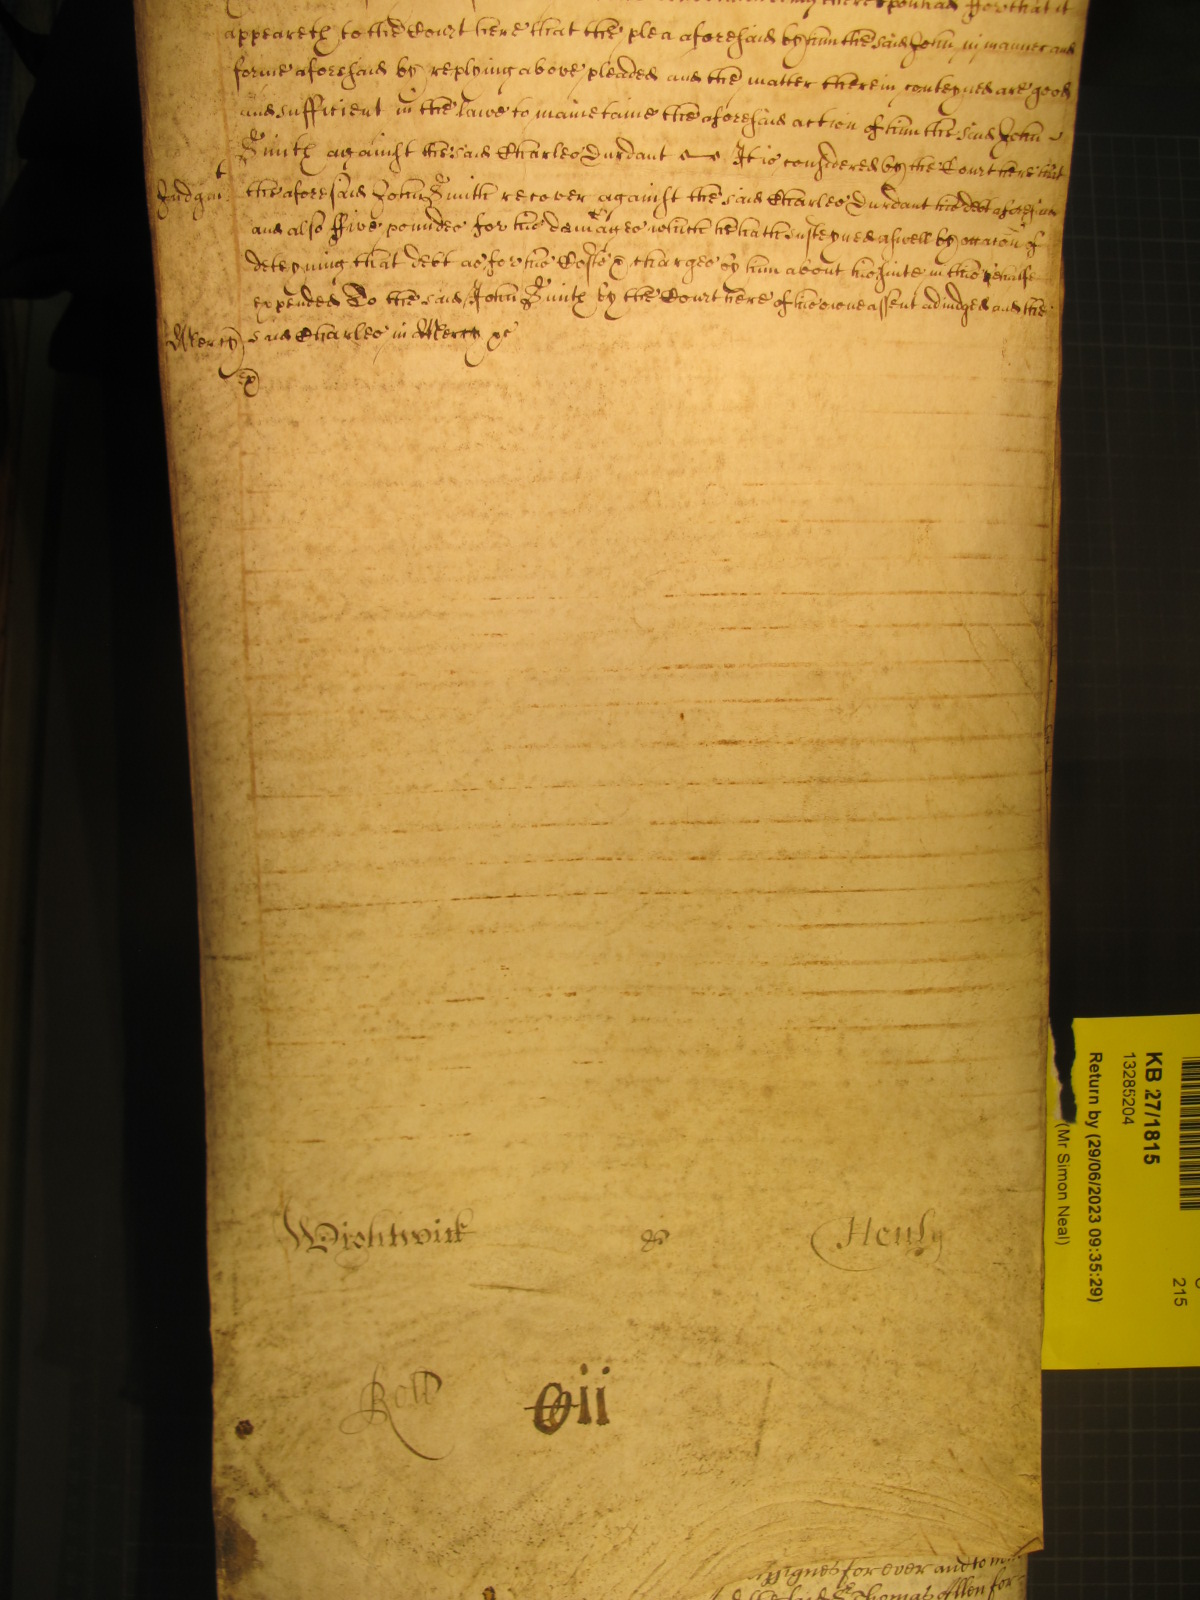 thereupon had ffor that it
appeareth to the Court here that the plea aforesaid by him the said John in manner and
forme aforesaid by replying above pleaded and the matter therein conteyned are good
and sufficient in the lawe to mainetaine the aforesaid action of him the said John
Smith against the said Charles Durdant It is considered by the Court here that
Judgmt
the aforesaid John Smith recover against the said Charles Durdant his debt aforesaid
and also ffive poundes for his damages which he hath susteyned aswell by occacon of
deteyning that debt as for his Costs & charges by him about his suite in this behalfe
expended To the said John Smith by the Court here of his owne assent adiudged and the
Mercy
said Charles in Mercy &c
ex
Wightwick & Henly
Roll Cii
Assignes for ever and to
Thomas Allen for
KB 27/1815
13285204
Return by (29/06/2023 09:35:29)
(Mr Simon Neal)
215